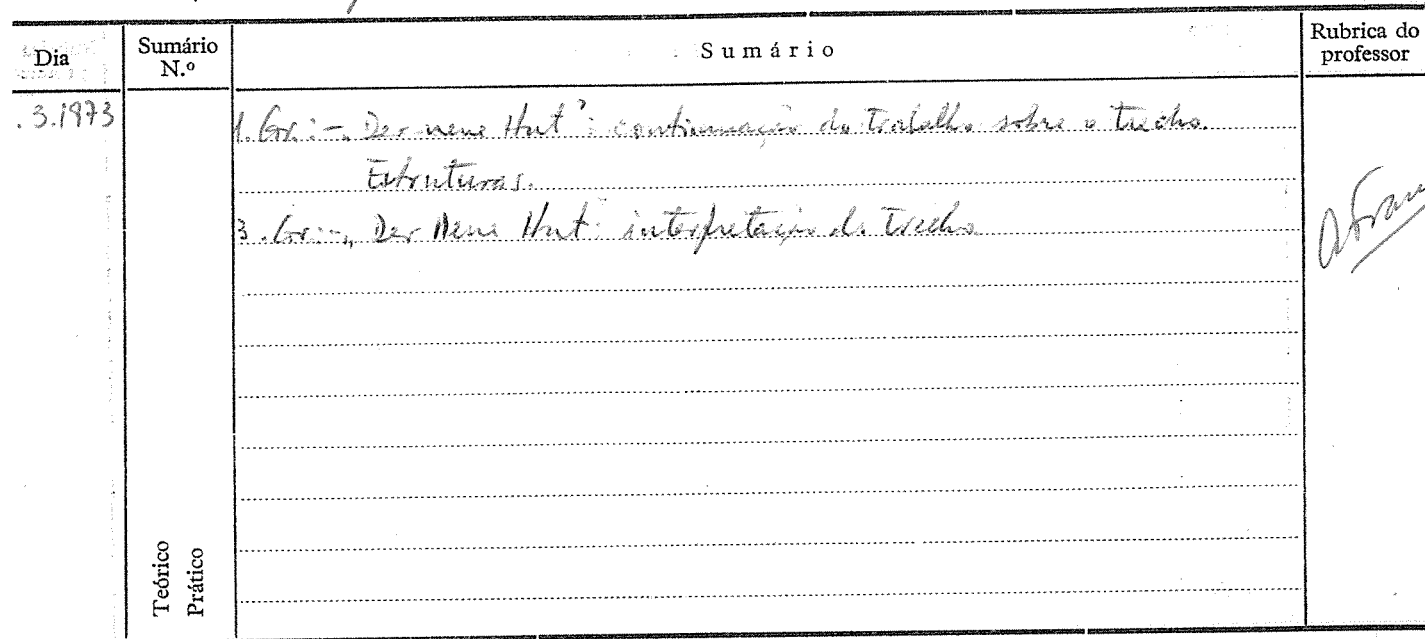 Dia
Sumário N.º
Sumário
Rubrica do professor
.3.1973
1. Gr.: - „Der neue Hut": continuação do trabalho sobre o trecho.
Estruturas.
3. Gr.: - „Der neue Hut": interpretação do trecho
Teórico
Prático